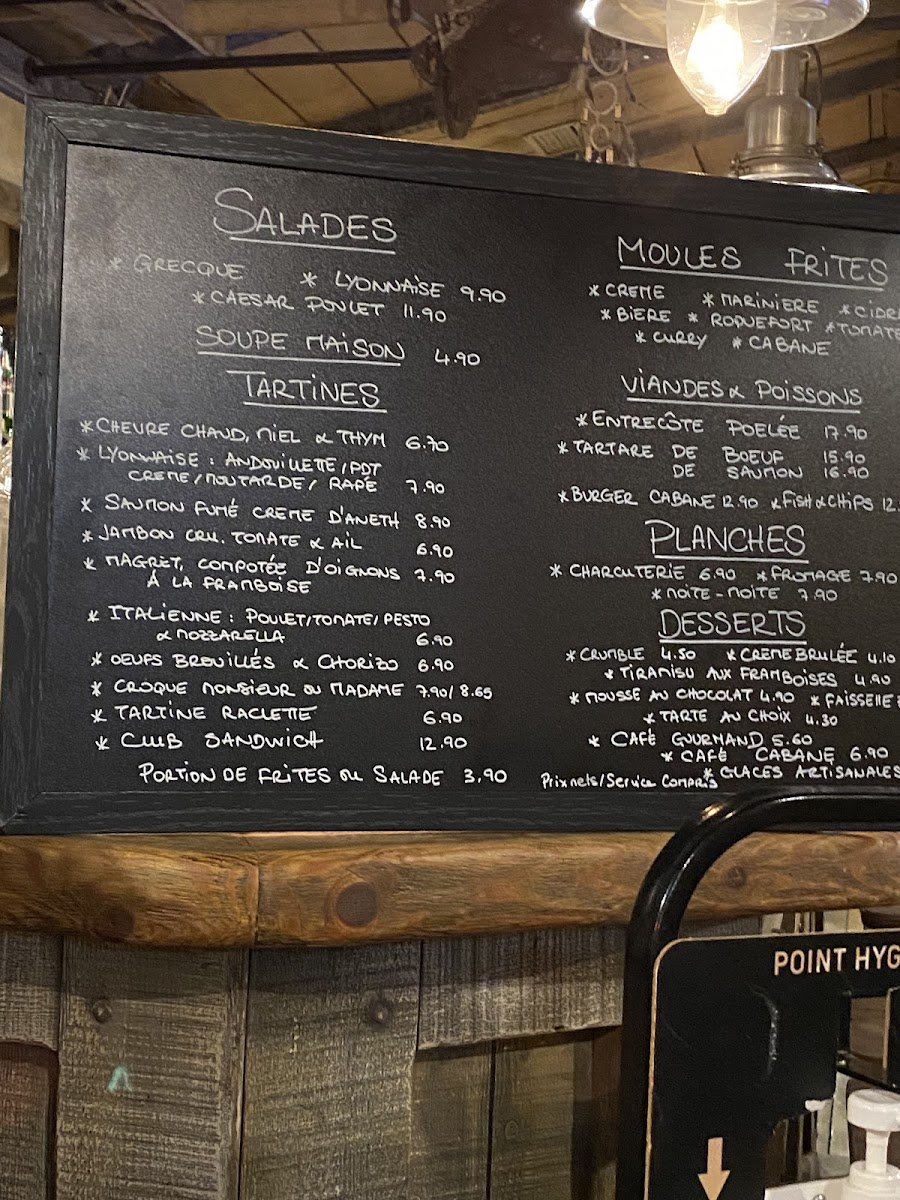 SALADES
* GRECQUE * LYONNAISE 9.90
* CAESAR POULET 11.90
SOUPE MAISON 4.90
TARTINES
* CHEVRE CHAUD, MIEL & THYM 6.70
* LYONNAISE : ANDOUILLETTE / PDT
CREME / MOUTARDE / RAPÉ 7.90
* SAUMON FUMÉ CREME D'ANETH 8.90
* JAMBON CRU, TOMATE & AIL 6.90
* MAGRET, COMPOTÉE D'OIGNONS 7.90
À LA FRAMBOISE
* ITALIENNE : POULET/TOMATE/PESTO
& MOZZARELLA 6.90
* OEUFS BROUILLÉS & CHORIZO 6.90
* CROQUE MONSIEUR OU MADAME 7.90/8.65
* TARTINE RACLETTE 6.90
* CLUB SANDWICH 12.90
PORTION DE FRITES OU SALADE 3.90
MOULES FRITES
* CREME * MARINIERE * CIDR
* BIERE * ROQUEFORT * TOMATE
* CURRY * CABANE
VIANDES & POISSONS
* ENTRECÔTE POELÉE 17.90
* TARTARE DE BOEUF 15.90
DE SAUMON 16.90
* BURGER CABANE 12.90 * FISH & CHIPS 12.
PLANCHES
* CHARCUTERIE 6.90 * FROMAGE 7.90
* MOITE-MOITE 7.90
DESSERTS
* CRUMBLE 4.50 * CREME BRULÉE 4.10
* TIRAMISU AUX FRAMBOISES 4.90
* MOUSSE AU CHOCOLAT 4.90 * FAISSELLE
* TARTE AU CHOIX 4.30
* CAFÉ GOURMAND 5.60
* CAFÉ CABANE 6.90
* GLACES ARTISANALES
Prix nets/Service Compris
POINT HYG